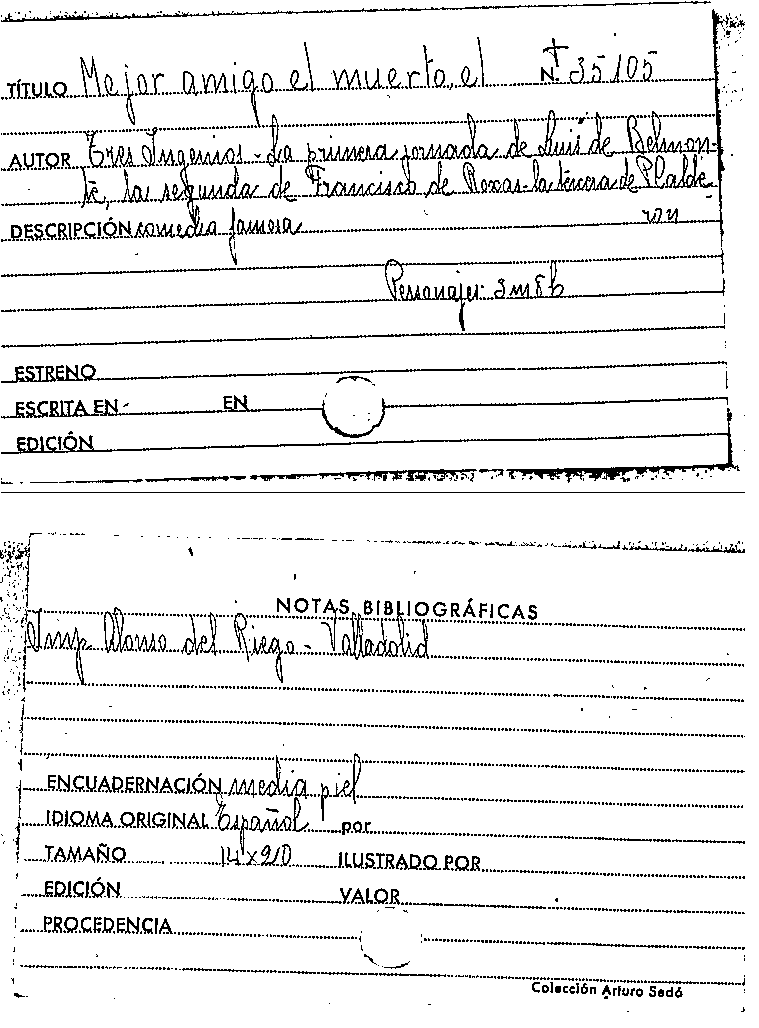 TÍTULO Mejor amigo el muerto, el Nº 35105
AUTOR Tres Ingenios - La primera jornada de Luis de Belmon-
te, la segunda de Francisco de Roxas - la tercera de P Calde
DESCRIPCIÓN comedia famosa ron
Personajes: 3 m 8 h
ESTRENO
ESCRITA EN - EN
EDICIÓN
NOTAS BIBLIOGRÁFICAS
Imp. Alonso del Riego - Valladolid
ENCUADERNACIÓN media piel
IDIOMA ORIGINAL Español por
TAMAÑO 14 x 20 ILUSTRADO POR
EDICIÓN VALOR
PROCEDENCIA
Colección Arturo Sedó